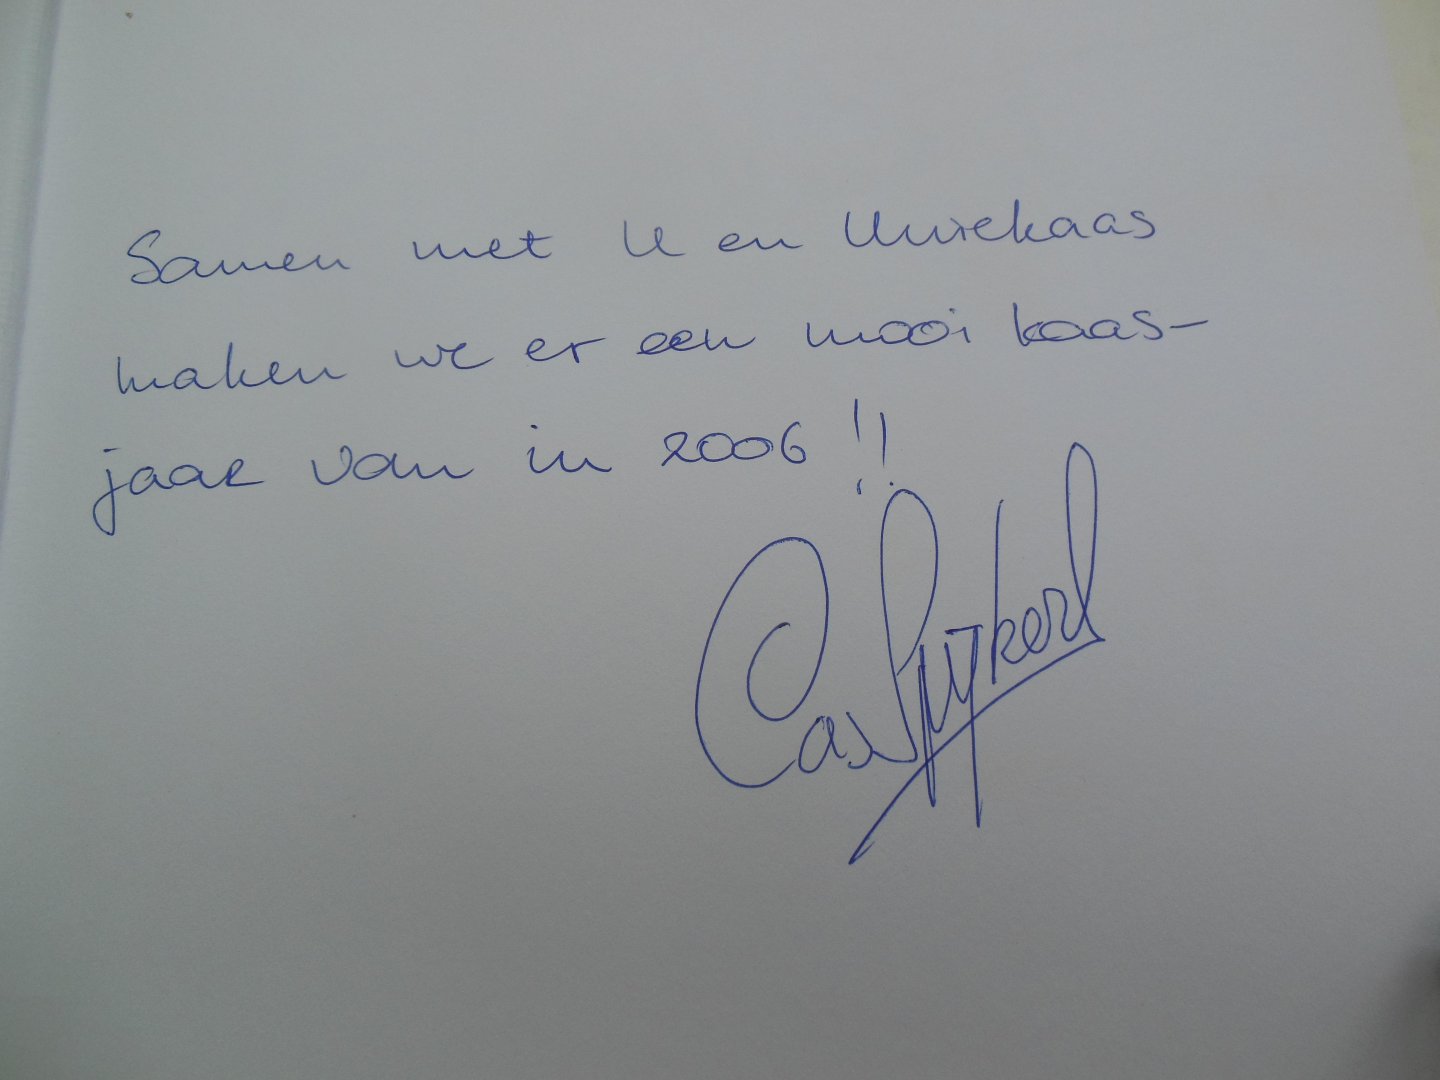 Samen met U en Uniekaas
maken we er een mooi kaas-
jaar van in 2006 !!
Cas Spijkers